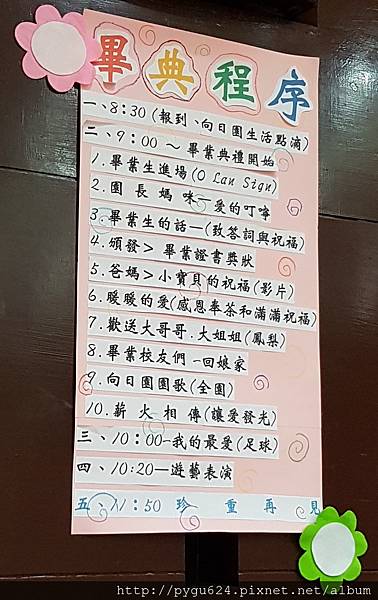 畢典程序
一、8:30(報到、向日園生活點滴)
二、9:00~畢業典禮開始
1.畢業生進場(O Lan Sign)
2.園長媽咪-愛的叮嚀
3.畢業生的話-(致答詞與祝福)
4.頒發>畢業證書獎狀
5.爸媽>小寶貝的祝福(影片)
6.暖暖的愛(感恩奉茶和滿滿祝福)
7.歡送大哥哥.大姐姐(鳳梨)
8.畢業校友們-回娘家
9.向日園園歌(全園)
10.薪火相傳(讓愛發光)
三、10:00-我的最愛(足球)
四、10:20-遊藝表演
五、11:50 珍重再見
http://pygu624.pixnet.net/album